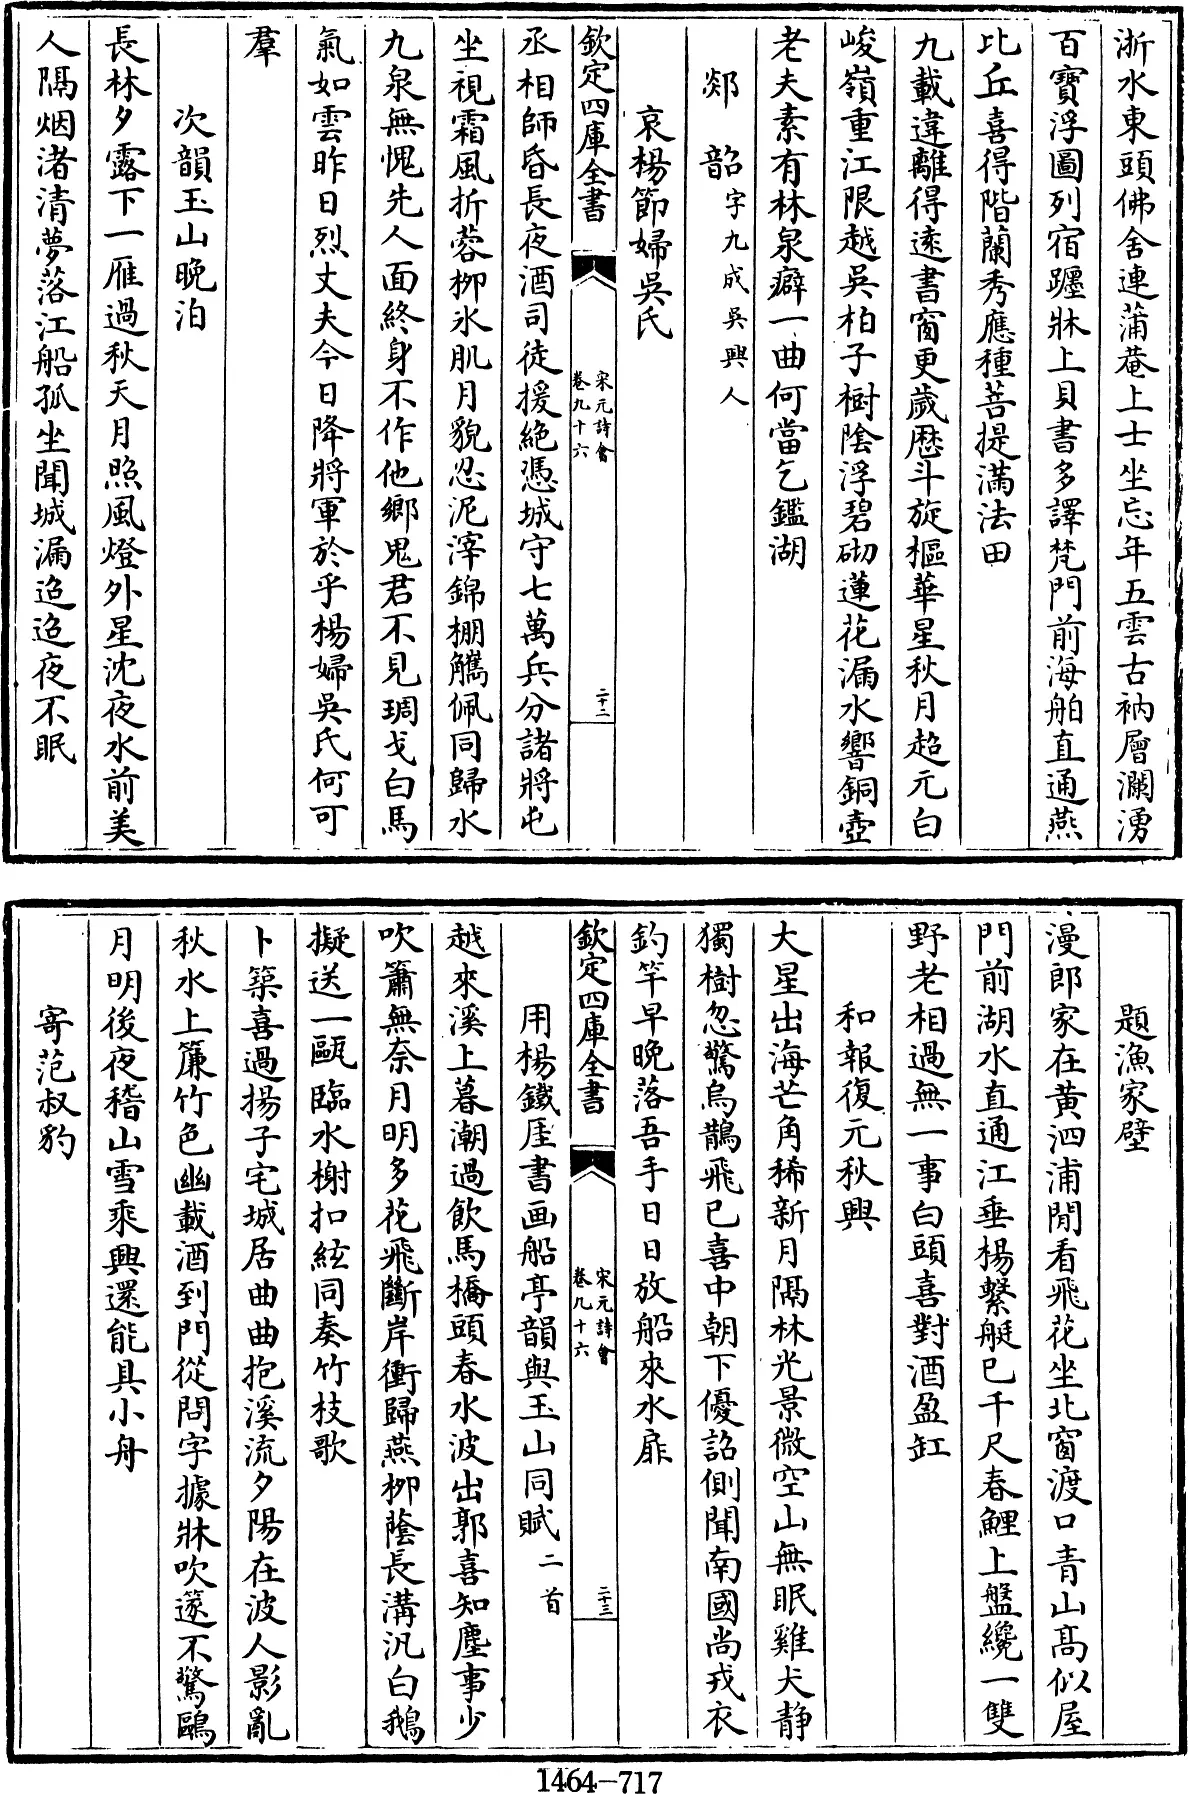 浙水東頭佛舍連蒲菴上士坐忘年五雲古衲層瀾湧
百寶浮圖列宿躔牀上貝書多譯梵門前海舶直通燕
比丘喜得階蘭秀應種菩提滿法田
九載違離得遠書窗更歲厯斗旋樞華星秋月超元白
峻嶺重江限越吳柏子樹陰浮碧砌蓮花漏水響銅壺
老夫素有林泉癖一曲何當乞鑑湖
郯韶字九成吳興人
哀楊節婦吳氏
欽定四庫全書
宋元詩會
卷九十六
二十二
丞相師昏長夜酒司徒援絕憑城守七萬兵分諸將屯
坐視霜風折蓉柳氷肌月貌忍泥滓錦棚觿佩同歸水
九泉無愧先人面終身不作他鄉鬼君不見琱戈白馬
氣如雲昨日烈丈夫今日降將軍於乎楊婦吳氏何可
羣
次韻玉山晚泊
長林夕露下一雁過秋天月照風燈外星沈夜水前美
人隔烟渚清夢落江船孤坐聞城漏迢迢夜不眠
題漁家壁
漫郎家在黄泗浦閒看飛花坐北窗渡口青山高似屋
門前湖水直通江垂楊繫艇已千尺春鯉上盤纔一雙
野老相過無一事白頭喜對酒盈缸
和報復元秋興
大星出海芒角稀新月隔林光景微空山無眠雞犬静
獨樹忽驚烏鵲飛已喜中朝下優詔側聞南國尚戎衣
釣竿早晚落吾手日日放船來水扉
欽定四庫全書
宋元詩會
卷九十六
二十三
用楊鐵厓書画船亭韻與玉山同賦二首
越來溪上暮潮過飲馬橋頭春水波出郭喜知塵事少
吹簫無奈月明多花飛斷岸衝歸燕柳蔭長溝汎白鵝
擬送一甌臨水榭扣絃同奏竹枝歌
卜築喜過揚子宅城居曲曲抱溪流夕陽在波人影亂
秋水上簾竹色幽載酒到門從問字據牀吹篴不驚鷗
月明後夜稽山雪乘興還能具小舟
寄范叔豹
1464-717